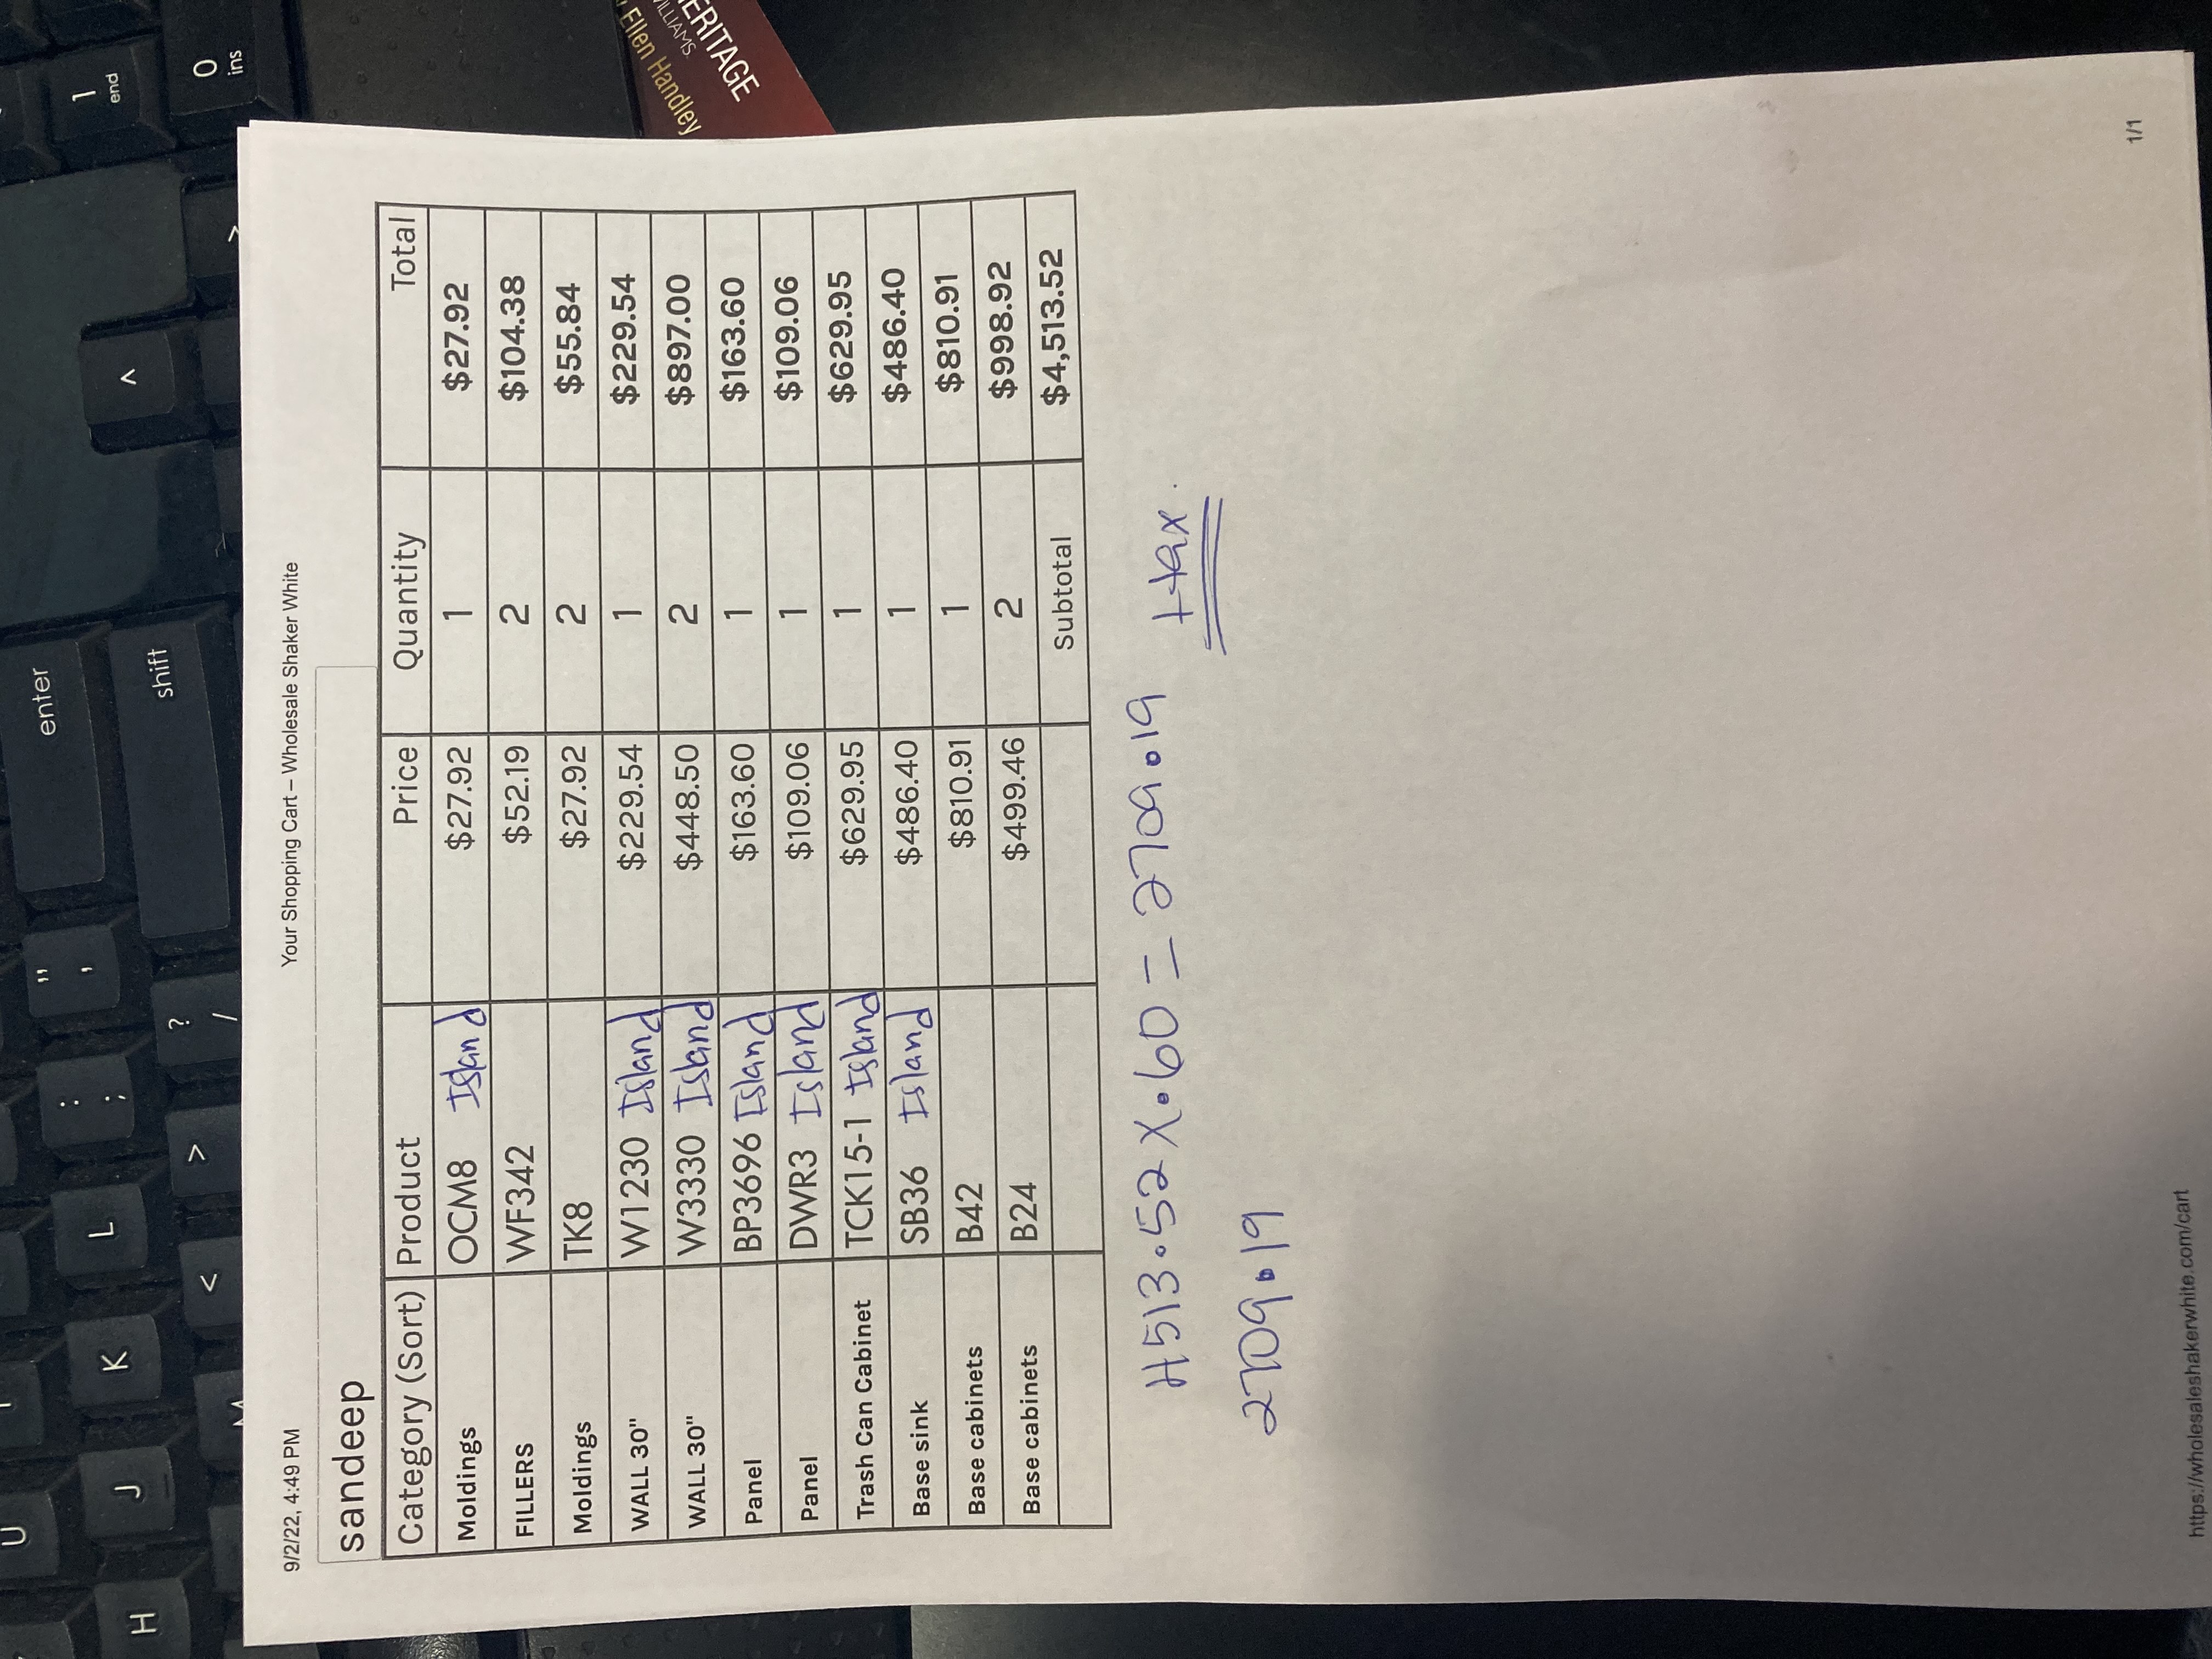 9/2/22, 4:49 PM Your Shopping Cart – Wholesale Shaker White
sandeep
Category (Sort) Product Price Quantity Total
Moldings OCM8 Island $27.92 1 $27.92
FILLERS WF342 $52.19 2 $104.38
Moldings TK8 $27.92 2 $55.84
WALL 30" W1230 Island $229.54 1 $229.54
WALL 30" W3330 Island $448.50 2 $897.00
Panel BP3696 Island $163.60 1 $163.60
Panel DWR3 Island $109.06 1 $109.06
Trash Can Cabinet TCK15-1 Island $629.95 1 $629.95
Base sink SB36 Island $486.40 1 $486.40
Base cabinets B42 $810.91 1 $810.91
Base cabinets B24 $499.46 2 $998.92
Subtotal $4,513.52
4513.52 X .60 = 2709.19 +tax.
2709.19
https://wholesaleshakerwhite.com/cart 1/1
ERITAGE
WILLIAMS
Ellen Handley
enter
shift
1
end
0
ins
^
"
'
:
;
?
/
>
<
L
K
J
H
U
M